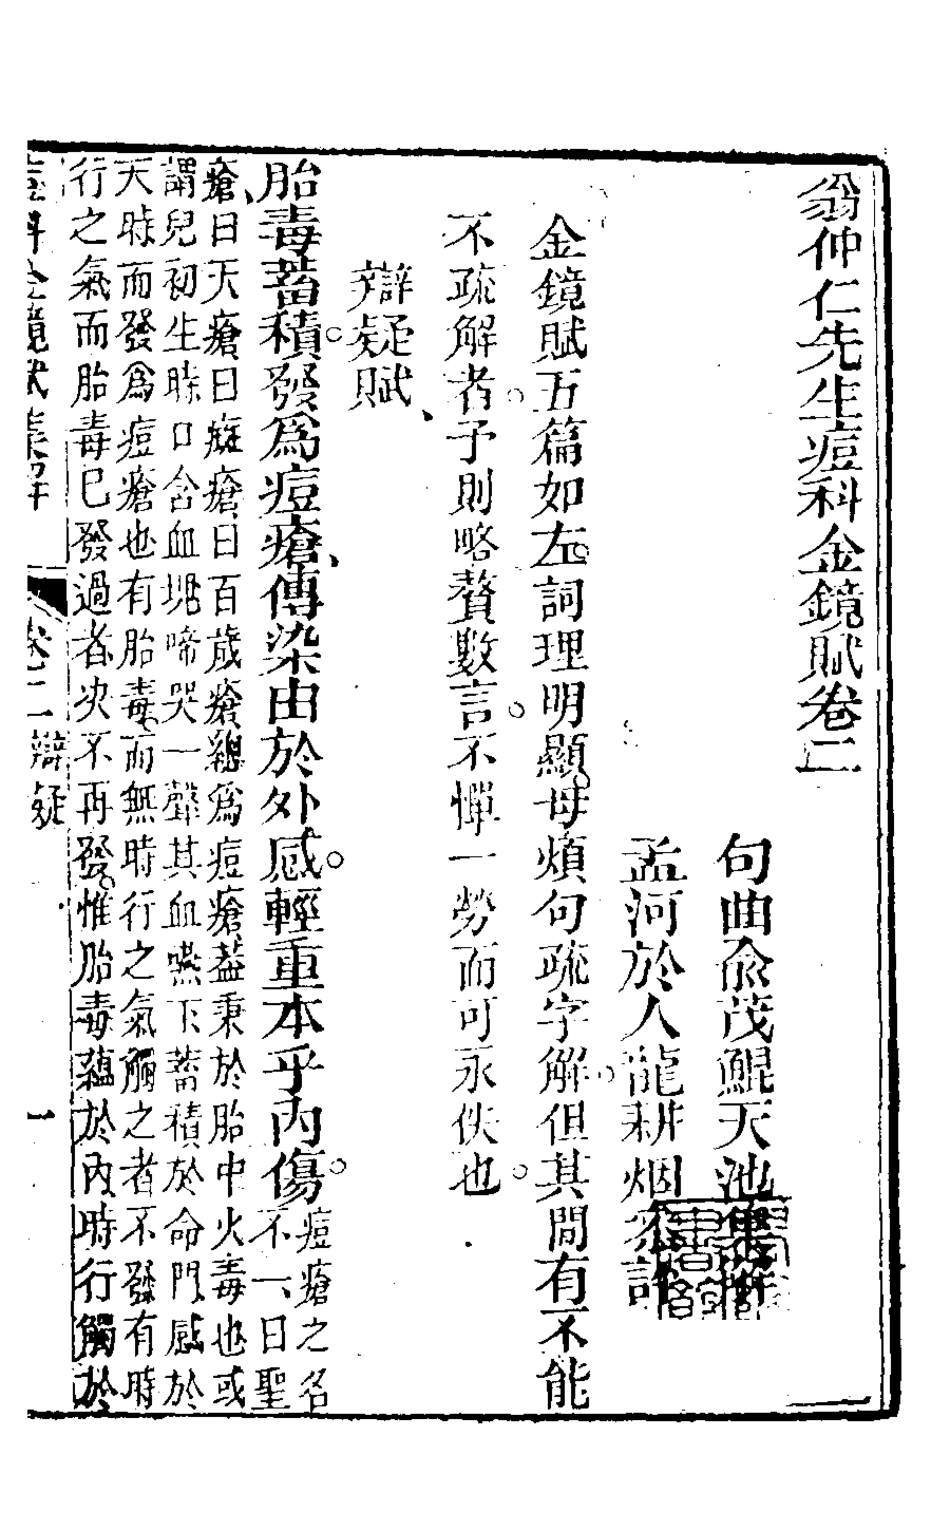 翁仲仁先生痘科金鏡賦卷二
句曲俞茂鯤天池集解
孟河於人龍耕烟參訂
金鏡賦五篇如左詞理明顯毋煩句疏字解但其間有不能
不疏解者予則略贅數言不憚一勞而可永佚也
辯疑賦
胎毒蓄積發為痘瘡傳染由於外感輕重本乎內傷
痘瘡之名
不一曰聖
瘡曰天瘡曰疵瘡曰百歲瘡總為痘瘡葢秉於胎中火毒也或
謂兒初生時口含血塊啼哭一聲其血嚥下蓄積於命門感於
天時而發為痘瘡也有胎毒而無時行之氣觸之者不發有時
行之氣而胎毒已發過者决不再發惟胎毒蘊於內時行觸於
痘科金鏡賦集解
卷二
辯疑
一